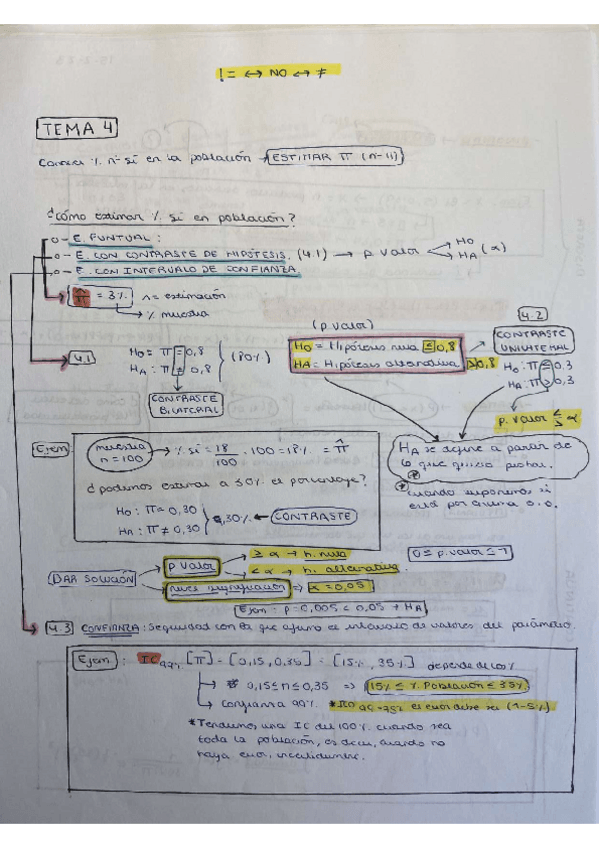 != ↔ NO ↔ ≠
TEMA 4
Conocer % nº sí en la población → ESTIMAR π (n-11)
¿Cómo estimar % sí en población?
o - E. PUNTUAL:
o - E. CON CONTRASTE DE HIPÓTESIS. (4.1) → p valor
H0
HA (α)
o - E. CON INTERVALO DE CONFIANZA.
π̂ = 3% ∧ = estimación
→ % muestra
4.1
H0 = π = 0,8
HA : π ≠ 0,8
(80%)
CONTRASTE
BILATERAL
(p valor)
H0 = Hipótesis nula ≤ 0,8
HA = Hipótesis alternativa > 0,8
4.2
CONTRASTE
UNILATERAL
H0 : π ≤ 0,3
HA : π > 0,3
p. valor ≤ α
HA se define a partir de
lo que quiero probar.
*cuando suponemos si
está por encima o.o.
Ejem
muestra
n = 100
→ % sí = 18/100 . 100 = 18% = π̂
¿podemos estimar a 30% el porcentaje?
H0 : π = 0,30
HA : π ≠ 0,30
30% ← CONTRASTE
DAR SOLUCIÓN
p valor
≥ α → h. nula
< α → h. alternativa.
0 ≤ p. valor ≤ 1
nivel significación → α = 0,05
Ejem: p = 0,005 < 0,05 → HA
4.3 CONFIANZA: Seguridad con la que ajusto el intervalo de valores del parámetro.
Ejem : IC99% [π] = [0,15, 0,35] = [15%, 35%] depende de los %
→ 0,15 ≤ π ≤ 0,35 ⇒ 15% ≤ % Población ≤ 35%
→ Confianza 99% * el error debe ser (1-5%)
*Tendremos una IC del 100% cuando sea
toda la población, es decir, cuando no
haya error, incertidumbre.